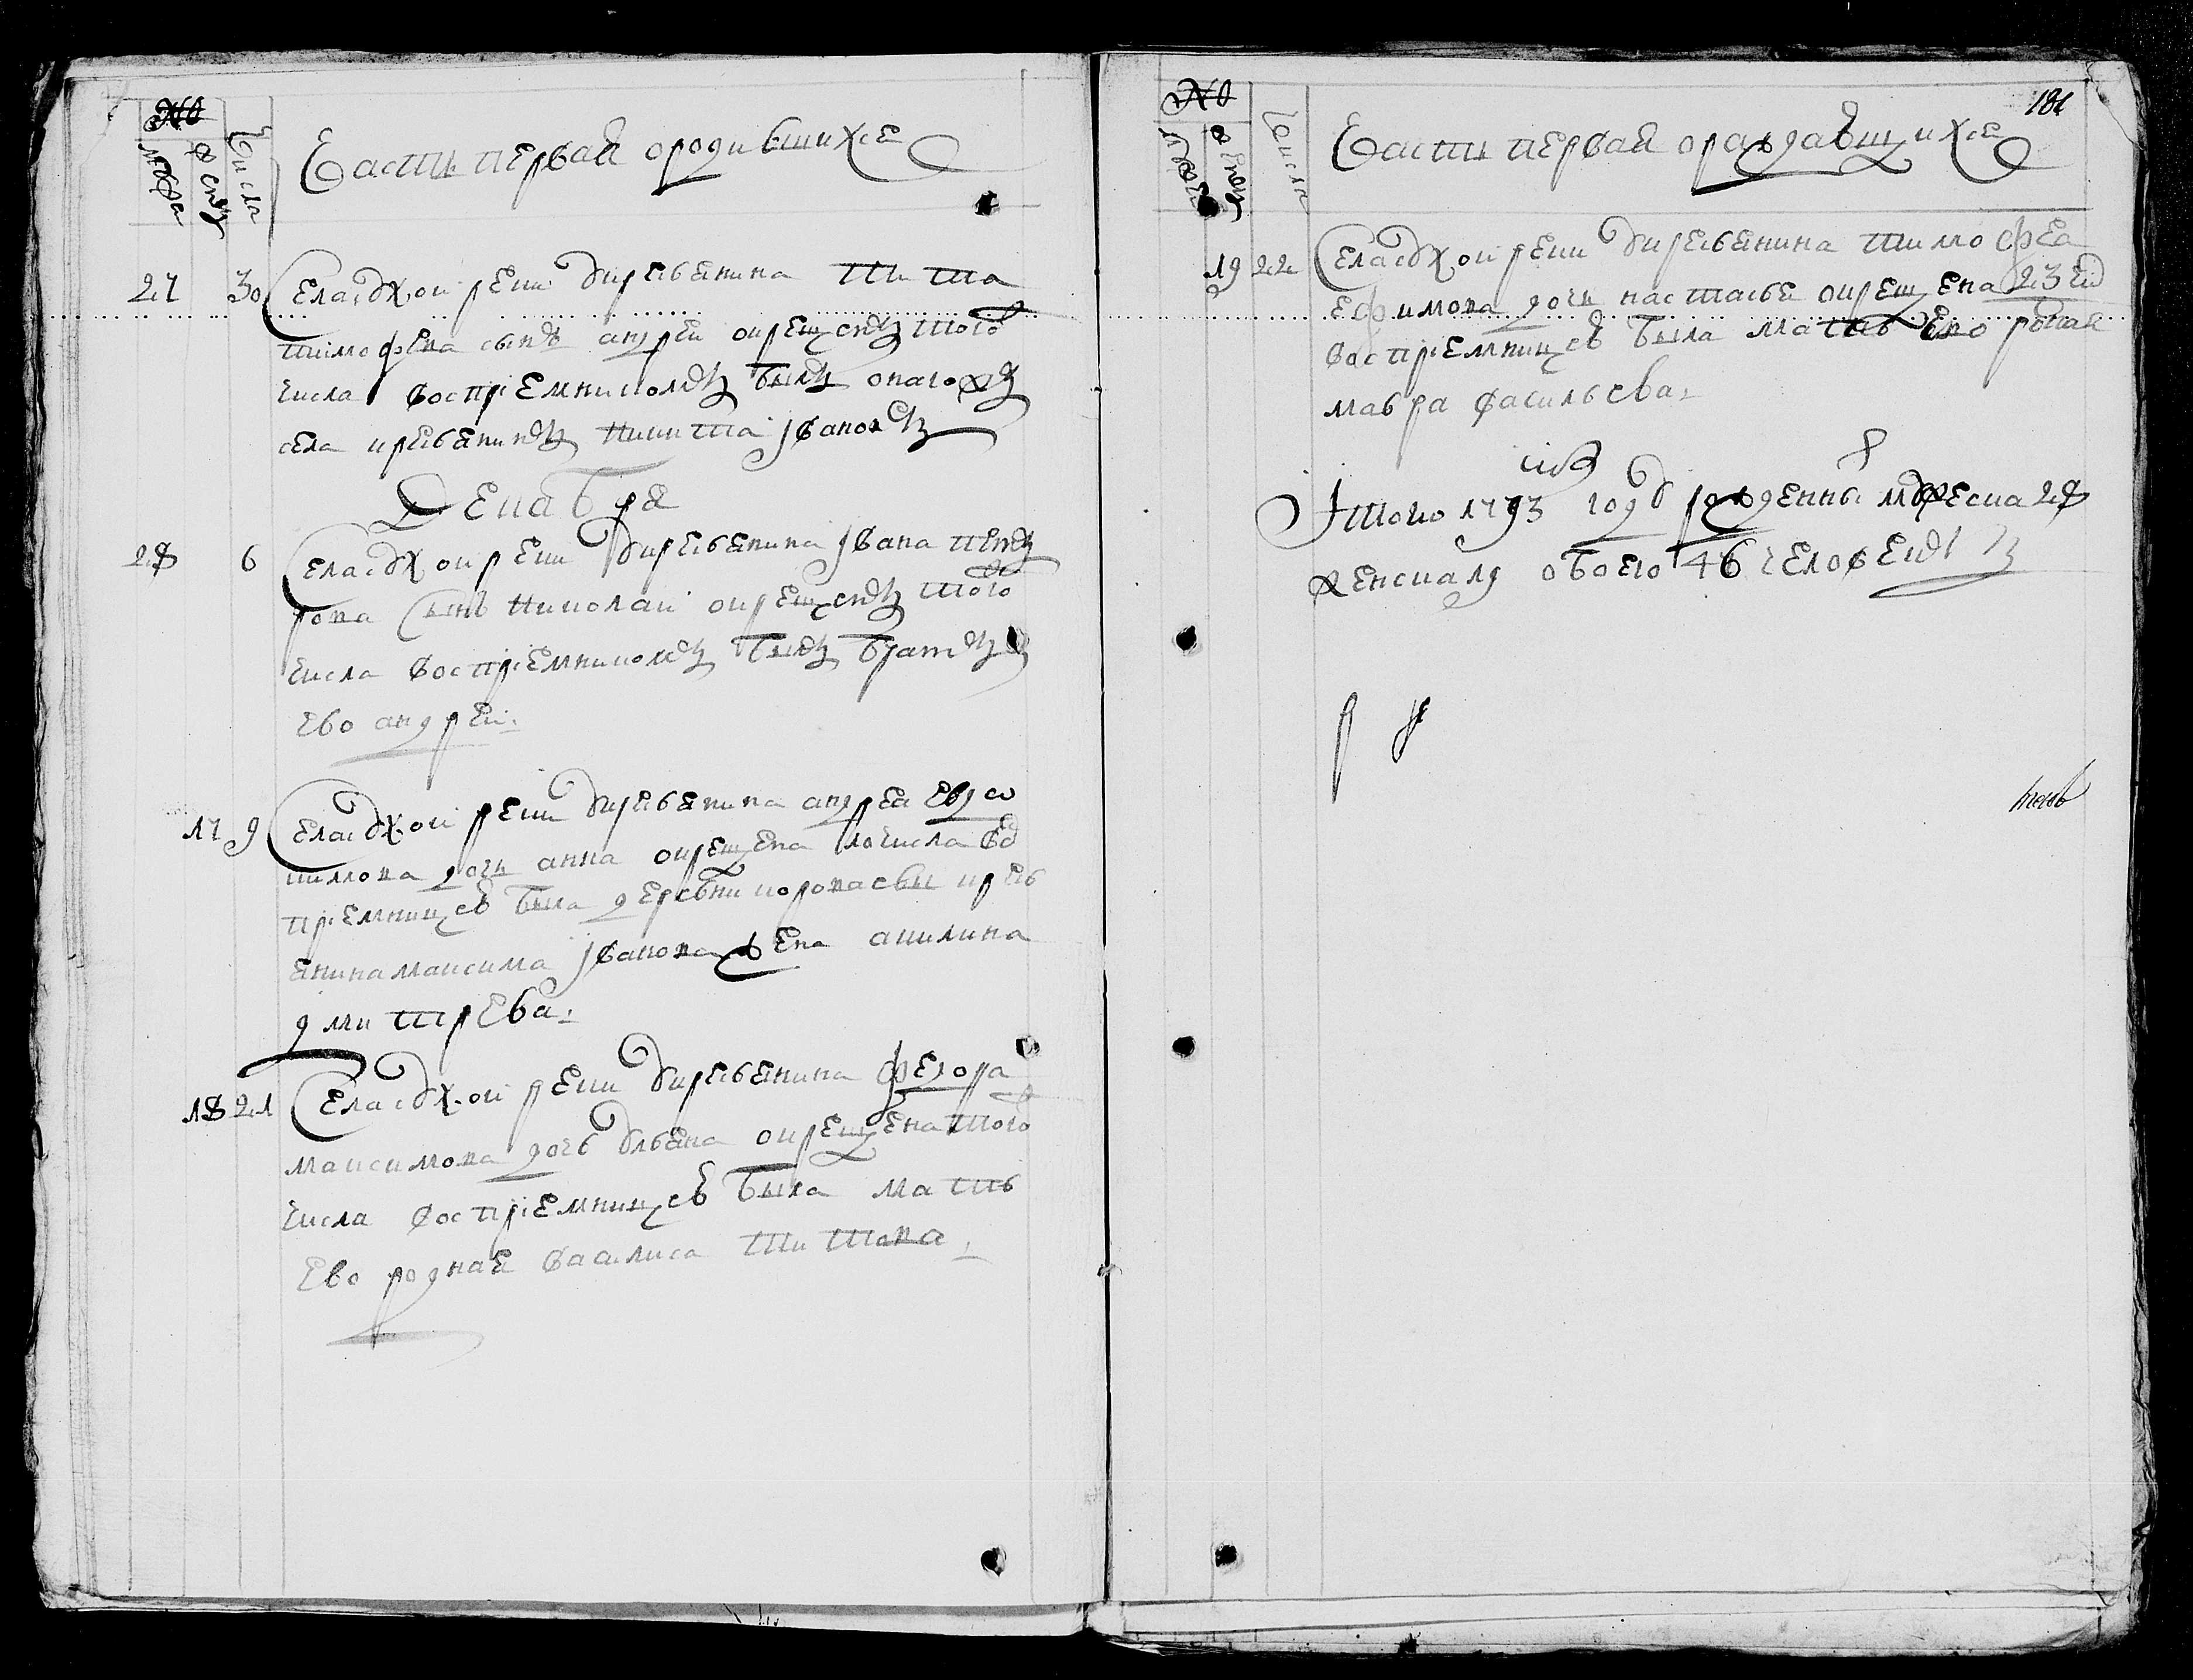 №
мужска
женск
Числа
Часть первая ородившихся
27 30 Села Сухой реки крестьянина Тита
тимофеева сынъ андрей окрещенъ того
числа восприемникомъ былъ онагожъ
села крестьянинъ Никита Jвановъ
Декабря
28 6 Села Сухой реки крестьянина Jвана пет
рова Сынъ Николай окрещенъ того
числа восприемникомъ былъ братъ
ево андрей.
17 9 Села Сухой реки крестьянина андрея евдо
кимова дочь анна окрещена 10 числа вос
приемницею была деревни крест
янина максима Jванова жена акилина
дмитрева.
18 21 Села Сухой реки крестьянина Федора
максимова дочь ульяна окрещена того
числа восприемницею была мать
Ево родная василиса Титова.
№
женск
числа
181
Часть первая ораждавшихся
19 22 Села Сухой реки крестьянина тимофея
ефимова дочь настасья окрещена 23 ч
восприемницею была мать ево родная
мавра васильева.
Jтого 1793 году рожденных мужеска 28
женска 19 обоего 46 человекъ